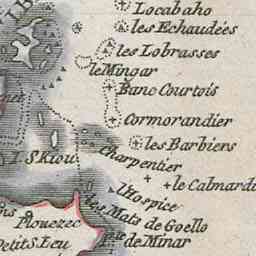 IB
Locabaho
les Echaudées
les Lobrasses
le Mingar
Banc Courtois
Cormorandier
les Barbiers
I. S. Riou
Charpentier
le Calmard
l'Hospice
les Mats de Goello
Plouezec
Petit S. Leu
de Minar